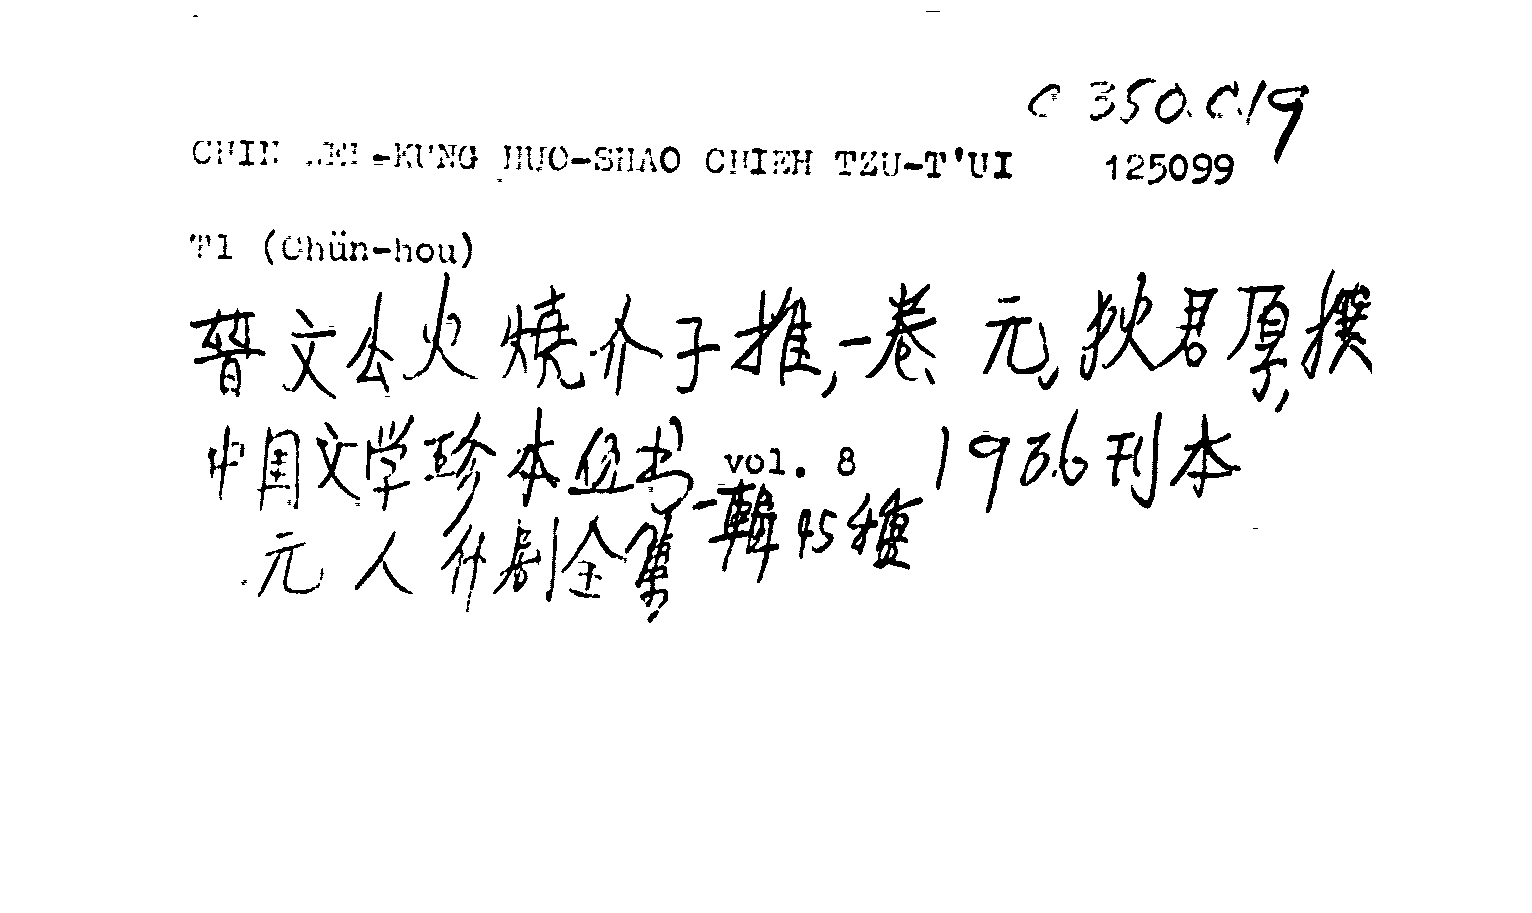 C 350.C.19
CHIN WEN-KUNG HUO-SHAO CHIEH TZU-T'UI 125099
TI (Chün-hou)
晉文公火燒介子推,一卷 元,狄君厚,撰
中国文学珍本丛书 vol. 8 1936刊本
元人什剧全集,一輯45種